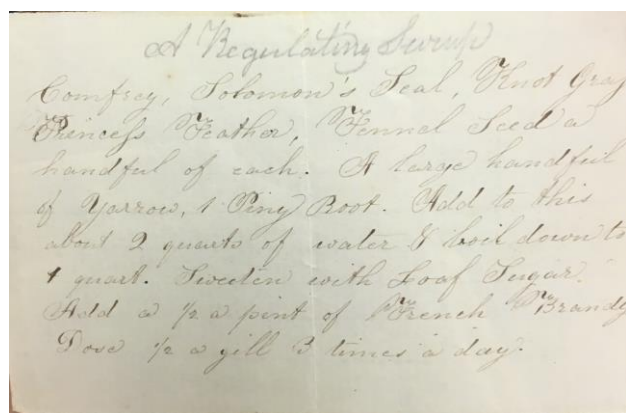 A Regulating Syrup
Comfrey, Solomon's Seal, Knot Gras
Princess Feather, Fennel Seed a
handful of each. A large handful
of Yarrow, 1 Piny Root. Add to this
about 2 quarts of water & boil down to
1 quart. Sweeten with Loaf Sugar.
Add a 1/2 a pint of French Brandy
Dose 1/2 a gill 3 times a day.